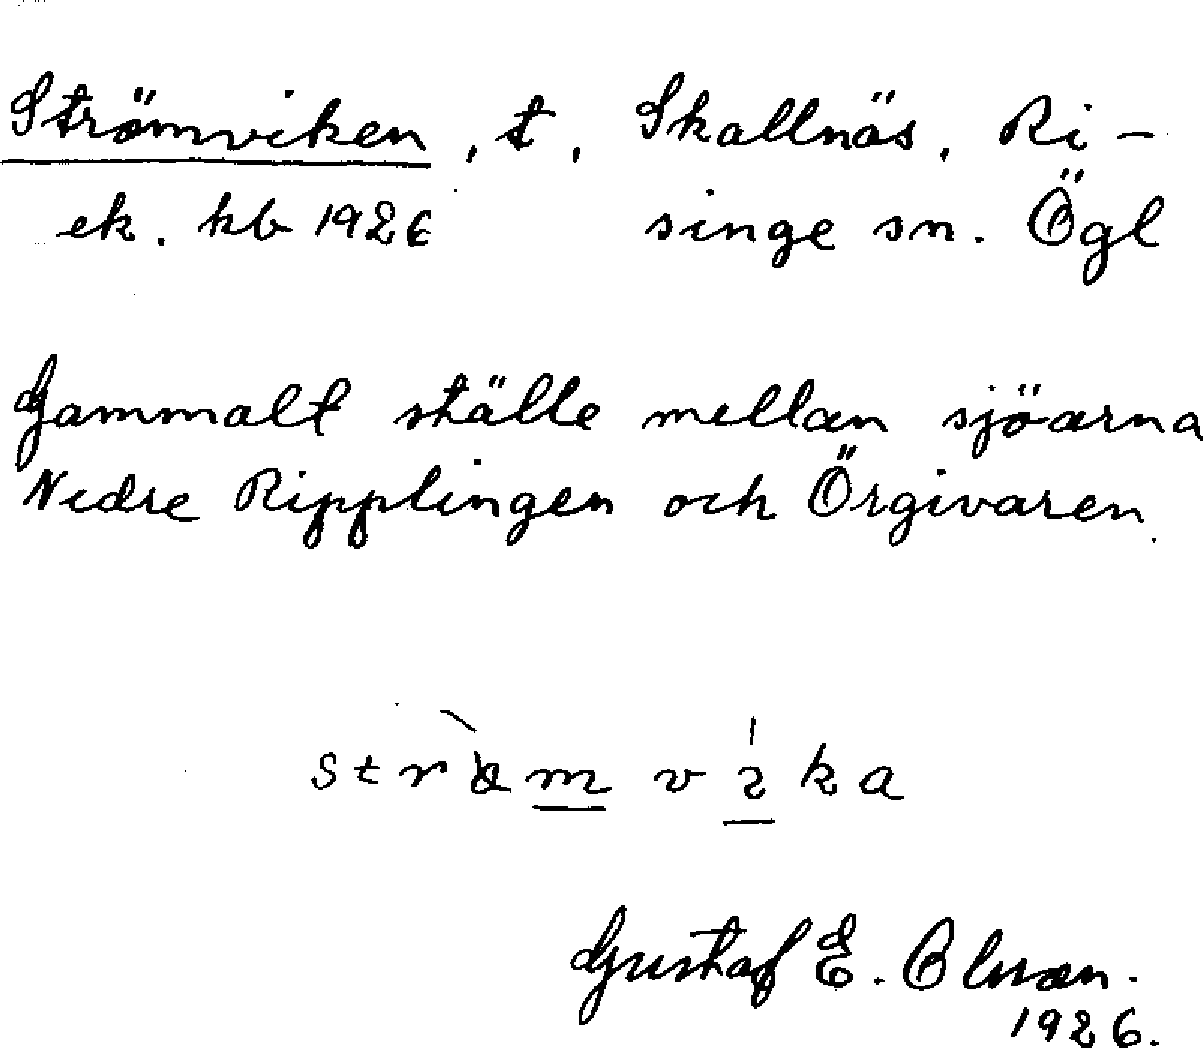 Strömviken, t, Skallnäs, Ri-
ek. kb 1926 singe sn. Ögl
Gammalt ställe mellan sjöarna
Nedre Ripplingen och Örgivaren.
Gustaf E. Olsson.
1926.